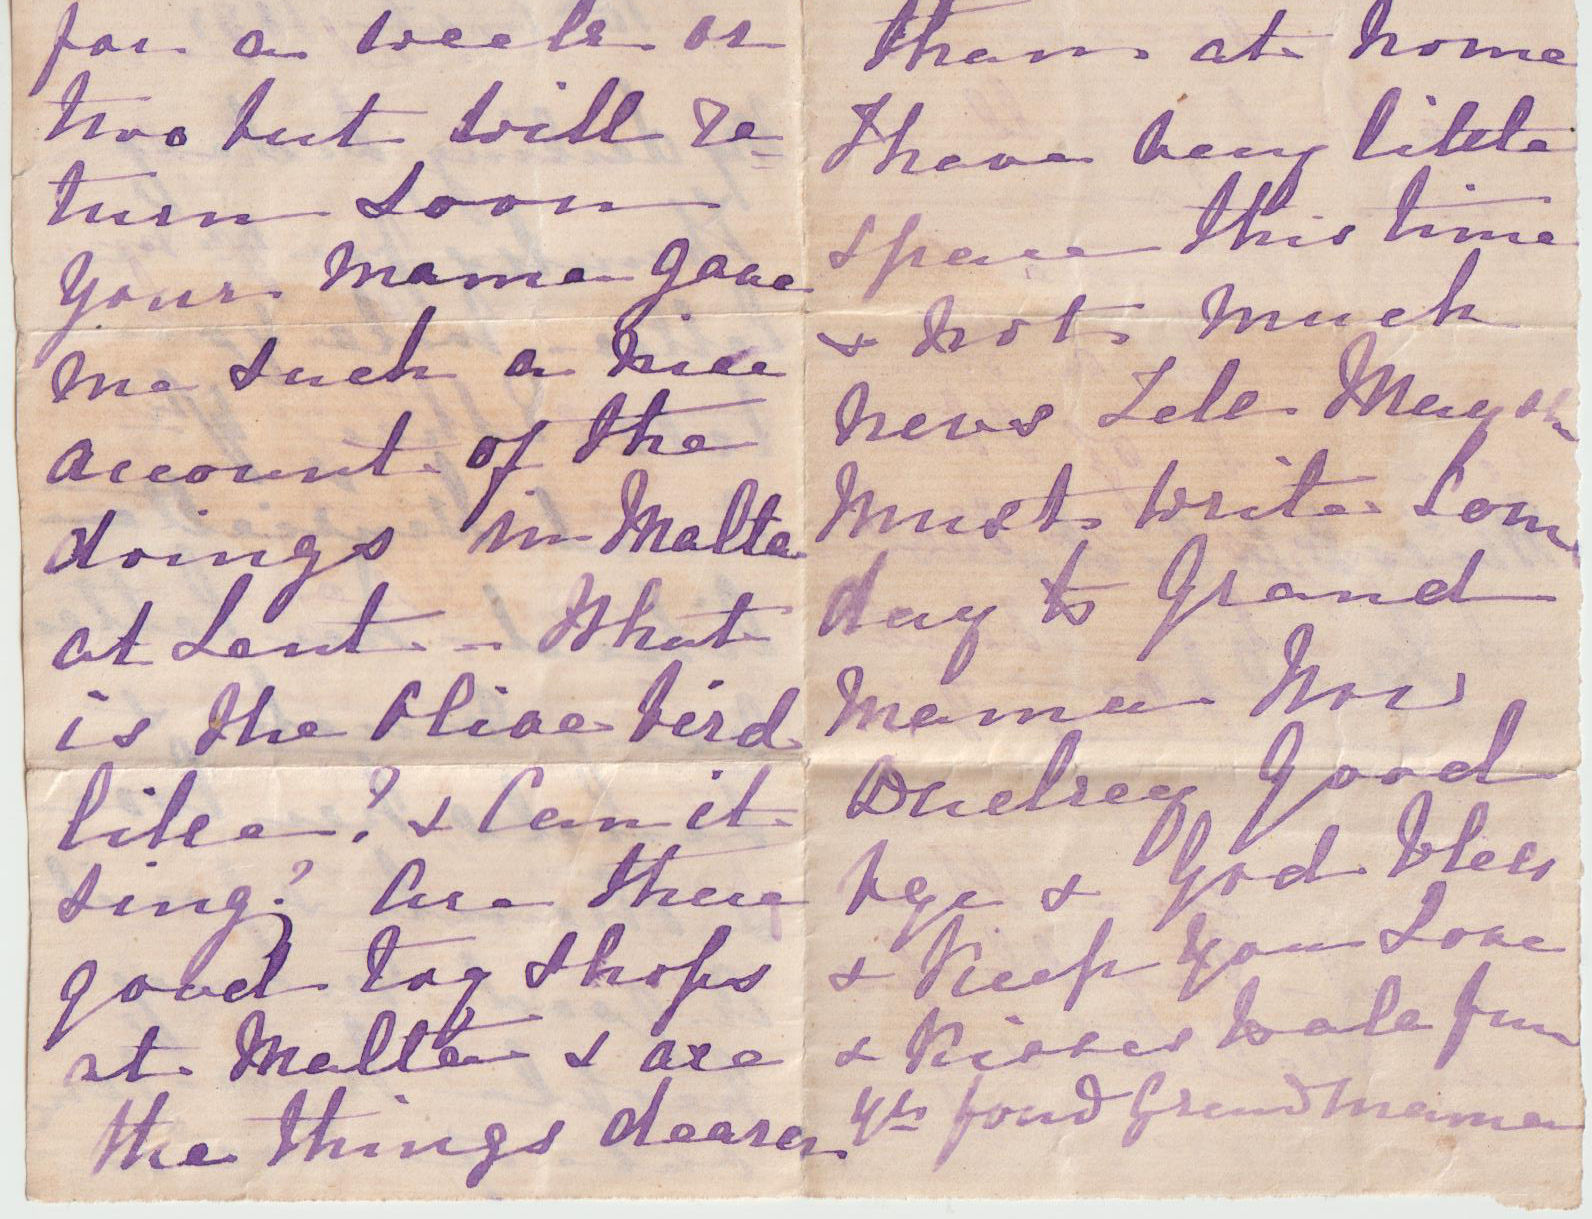 for a week or
two but will re-
turn soon
Your Mama gave
me such a nice
account of the
doings in Malta
at Lent - What
is the Olive bird
like? & Can it
sing? Are there
good toy shops
at Malta & are
the things dearer
than at home
I have very little
space this time
& not much
news Tell
Must write Som
day to Grand
Mama Now
Good
bye & God bless
& Keep you Love
& Kisses
Yr fond Grandmama